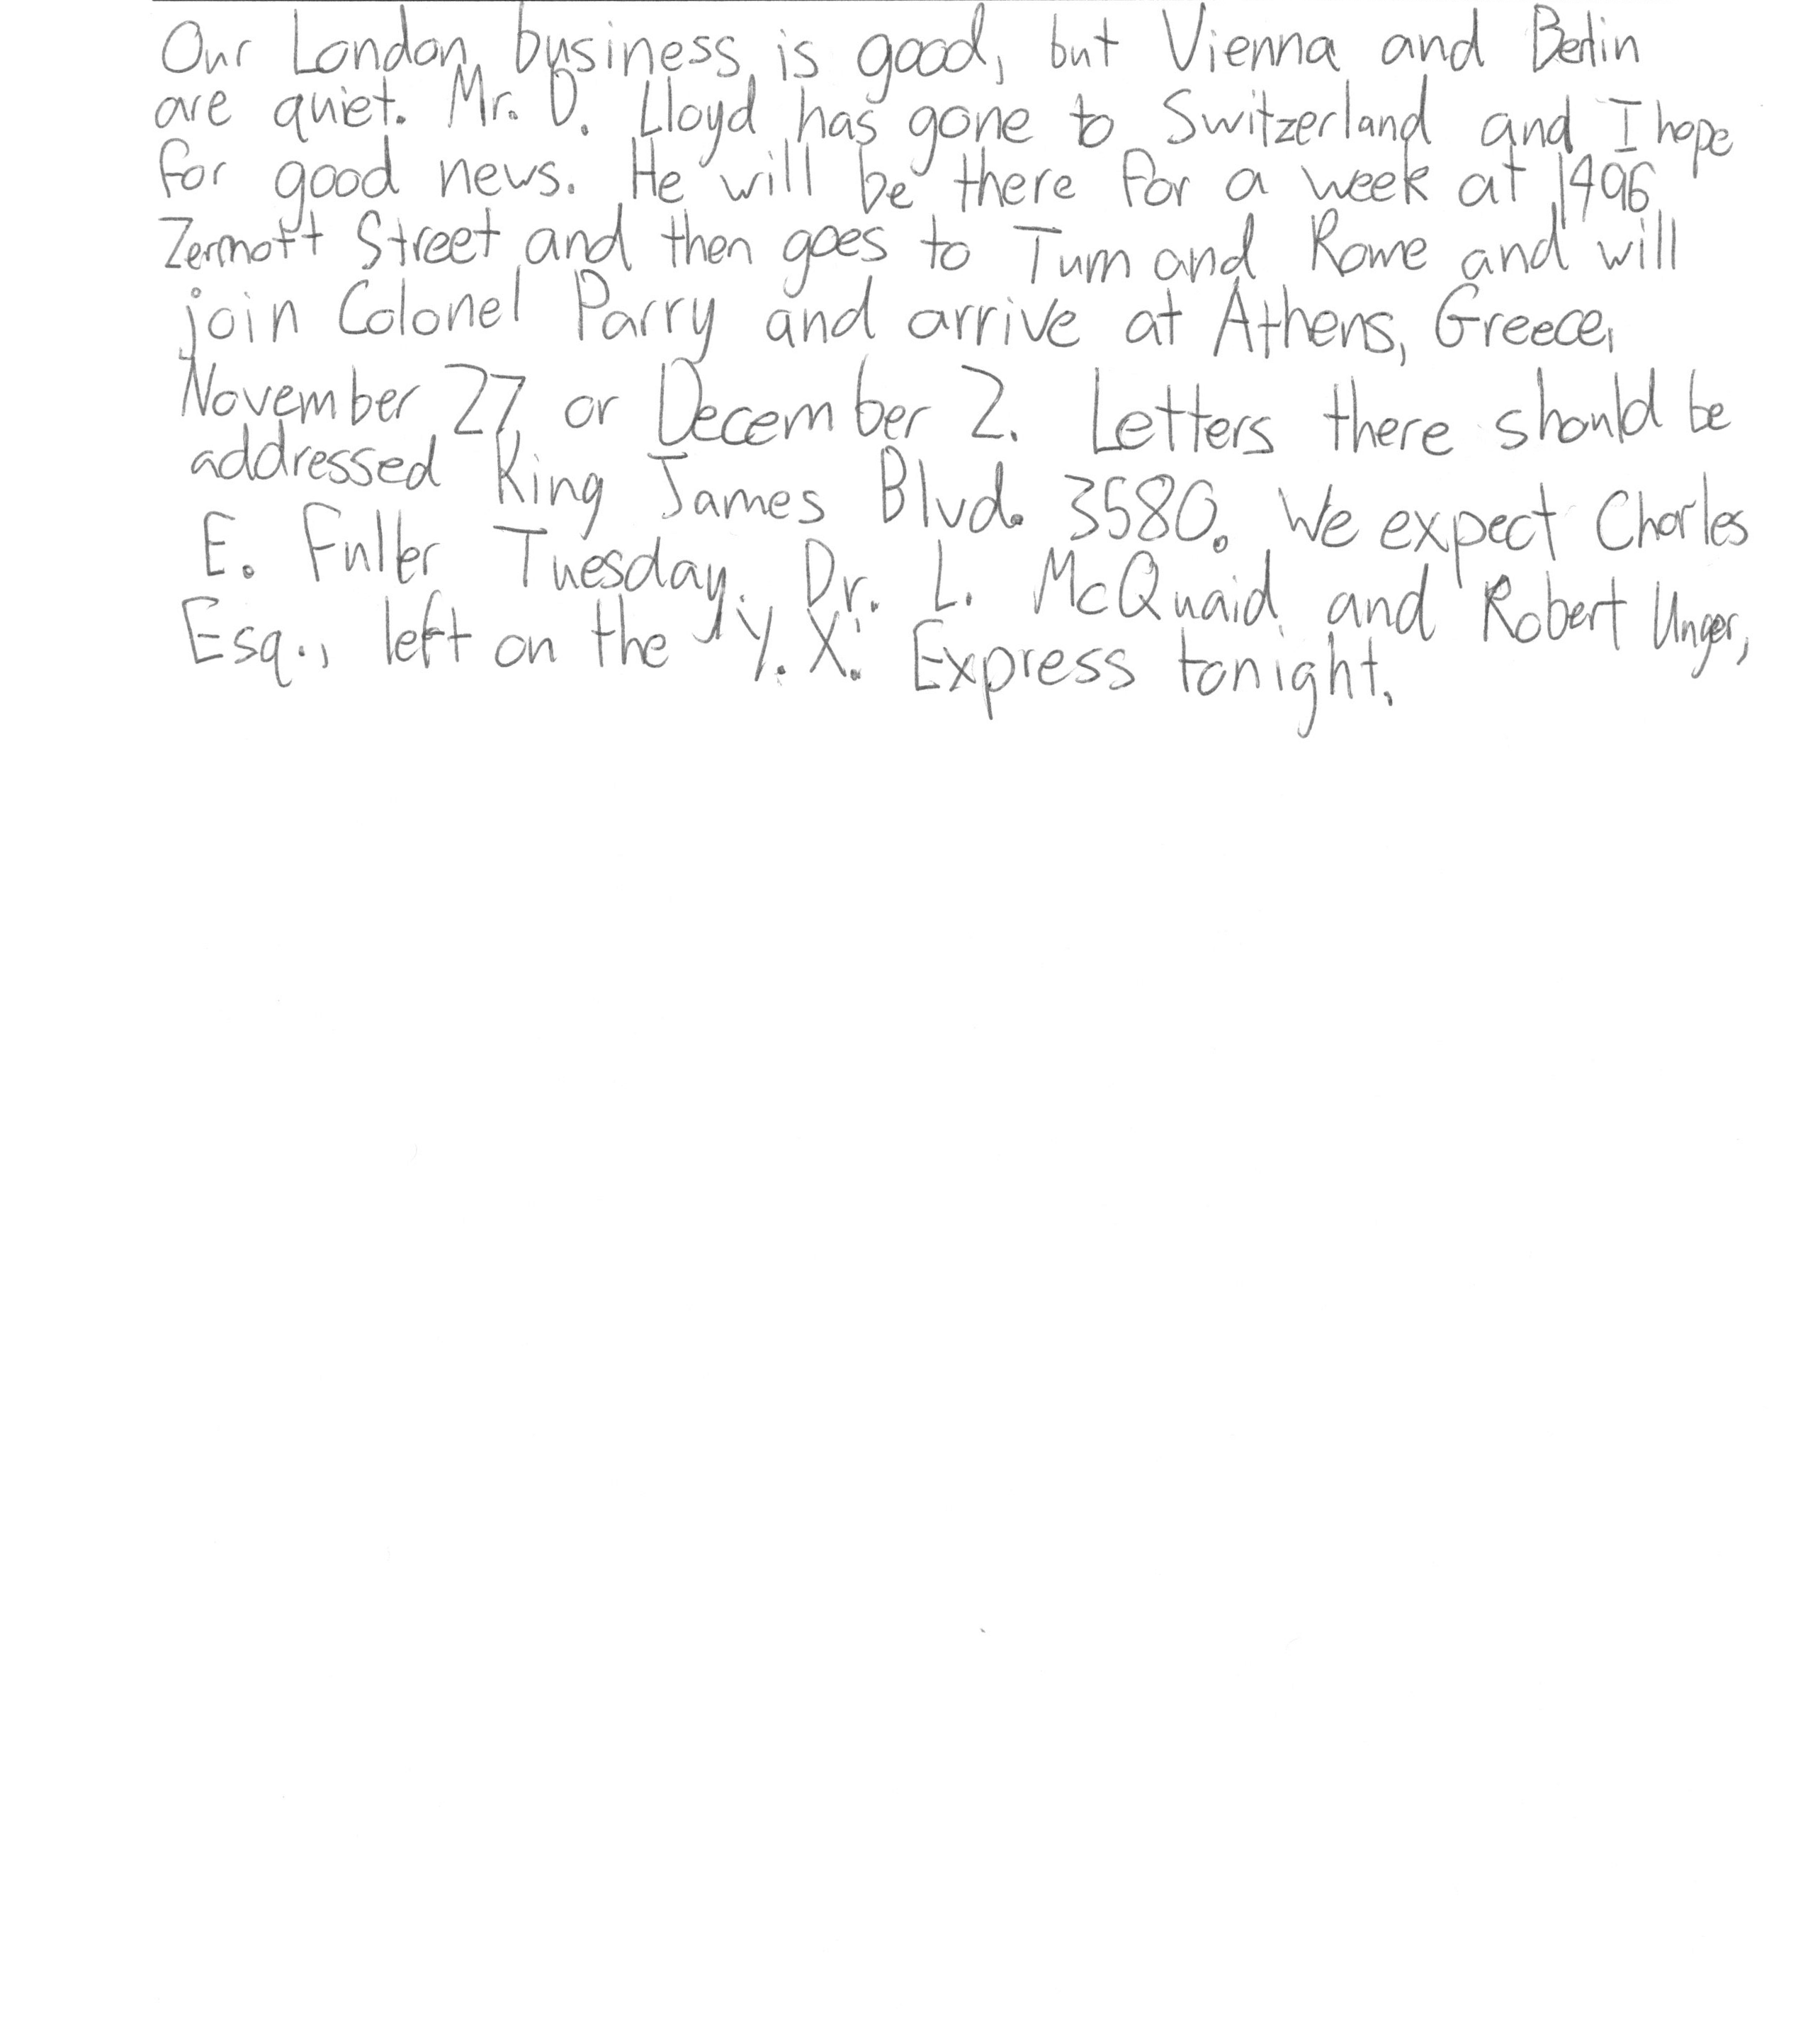 Our London business is good, but Vienna and Berlin
are quiet. Mr. D. Lloyd has gone to Switzerland and I hope
for good news. He will be there for a week at 1496
Zermott Street and then goes to Turn and Rome and will
join Colonel Parry and arrive at Athens, Greece,
November 27 or December 2. Letters there should be
addressed King James Blvd. 3580. We expect Charles
E. Fuller Tuesday. Dr. L. McQuaid and Robert Unger,
Esq., left on the "Y. X." Express tonight.